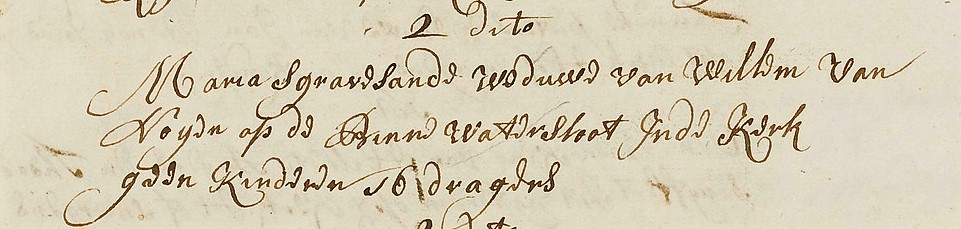 2 dito
Maria Sgravesande weduwe van Willem van
Noyen op de Binne watersloot Inde Kerk
geen Kinderen 16 dragers